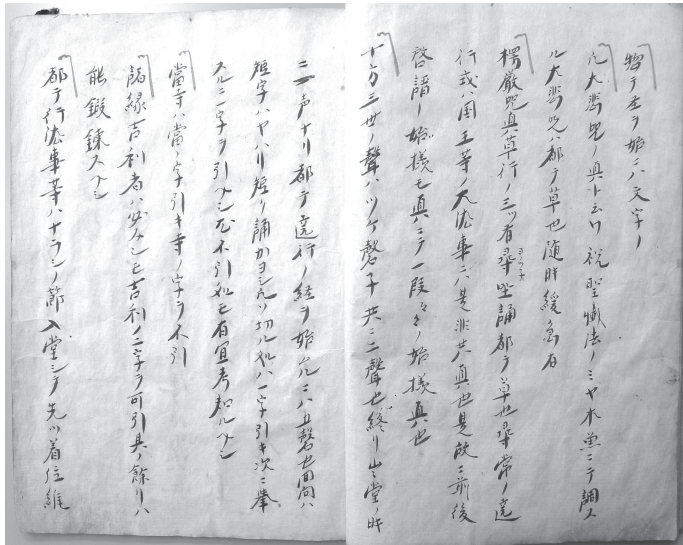 惣テ本ヲ始ニハ文字ノ
凡大悲咒ノ真ト云ハ祝聖懺法ノミヤ木魚ニテ調ス
ル大悲咒ハ都テ草也随時緩急有
楞厳咒真草行ノ三ツ有尋坐誦都テ草也尋常ノ遶
行或ハ国王等ノ大法事ニハ是非共真也見故ニ前後
啓請ノ始様モ真ニテ一段々々ノ始様真也
十方三世ノ聲ハツケ磬子共ニ二聲也終リ出堂ノ時
二声ナリ都テ遶行ノ経ヲ始ルニハ五磬也回向ハ
短字ハヤハリ短ク誦カヨシ凡ソ切ル処ハ一字引キ次ニ挙
スルニ字ヲ引ヘシ尤不引処モ有宜考知ルヘシ
當寺ハ當ノ字引キ寺ノ字ヲ不引
諸縁吉利者ハ必スシモ吉利ノ二字ヲ可引具ノ餘リハ
能鍛錬スヘシ
都テ行法事等ハナラシノ節入堂シテ先ツ着位維